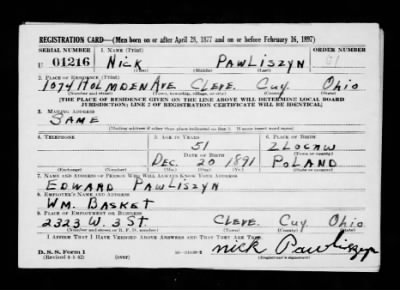 REGISTRATION CARD—(Men born on or after April 28, 1877 and on or before February 16, 1897)
SERIAL NUMBER 1. NAME (Print) ORDER NUMBER
U 01216 NICK PAWLISZYN
(First) (Middle) (Last)
2. PLACE OF RESIDENCE (Print)
1074 HOLMDEN AVE CLEVE. CUY. OHIO
(Number and street) (Town, township, village, or city) (County) (State)
[THE PLACE OF RESIDENCE GIVEN ON THE LINE ABOVE WILL DETERMINE LOCAL BOARD
JURISDICTION; LINE 2 OF REGISTRATION CERTIFICATE WILL BE IDENTICAL]
3. MAILING ADDRESS
SAME
[Mailing address if other than place indicated on line 2. If same insert word same]
4. TELEPHONE 5. AGE IN YEARS 6. PLACE OF BIRTH
51 ZLOCAW
DATE OF BIRTH
DEC. 20 1891 POLAND
(Mo.) (Day) (Yr.)
7. NAME AND ADDRESS OF PERSON WHO WILL ALWAYS KNOW YOUR ADDRESS
EDWARD PAWLISZYN
8. EMPLOYER'S NAME AND ADDRESS
WM. BASKET
9. PLACE OF EMPLOYMENT OR BUSINESS
2323 W. 3 ST. CLEVE. CUY OHIO
(Number and street or R. F. D. number) (Town) (County) (State)
I AFFIRM THAT I HAVE VERIFIED ABOVE ANSWERS AND THAT THEY ARE TRUE.
D. S. S. Form 1
(Revised 4-1-42) (over)
nick Pawliszyn
(Registrant's signature)